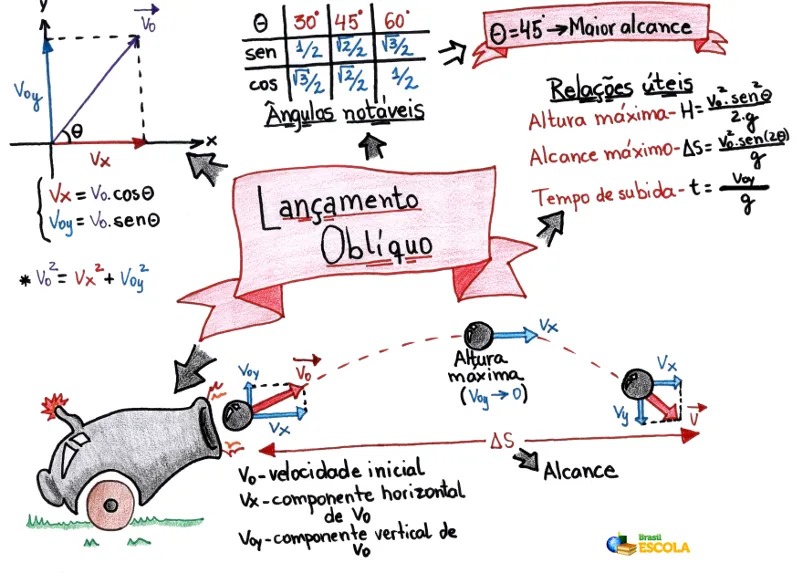 y
V₀
V₀y
θ
x
Vx
Vx = V₀.cosθ
V₀y = V₀.senθ
* V₀² = Vx² + V₀y²
θ 30° 45° 60°
sen 1/2 √2/2 √3/2
cos √3/2 √2/2 1/2
Ângulos notáveis
θ=45° → Maior alcance
Relações úteis
Altura máxima - H = V₀².sen²θ / 2.g
Alcance máximo - ΔS = V₀².sen(2θ) / g
Tempo de subida - t = V₀y / g
Lançamento
Oblíquo
V₀y
V₀
Vx
Vx
Altura
máxima
(V₀y → 0)
Vx
Vy
V
ΔS
Alcance
V₀-velocidade inicial
Vx-componente horizontal
de V₀
V₀y-componente vertical de
V₀
Brasil
ESCOLA